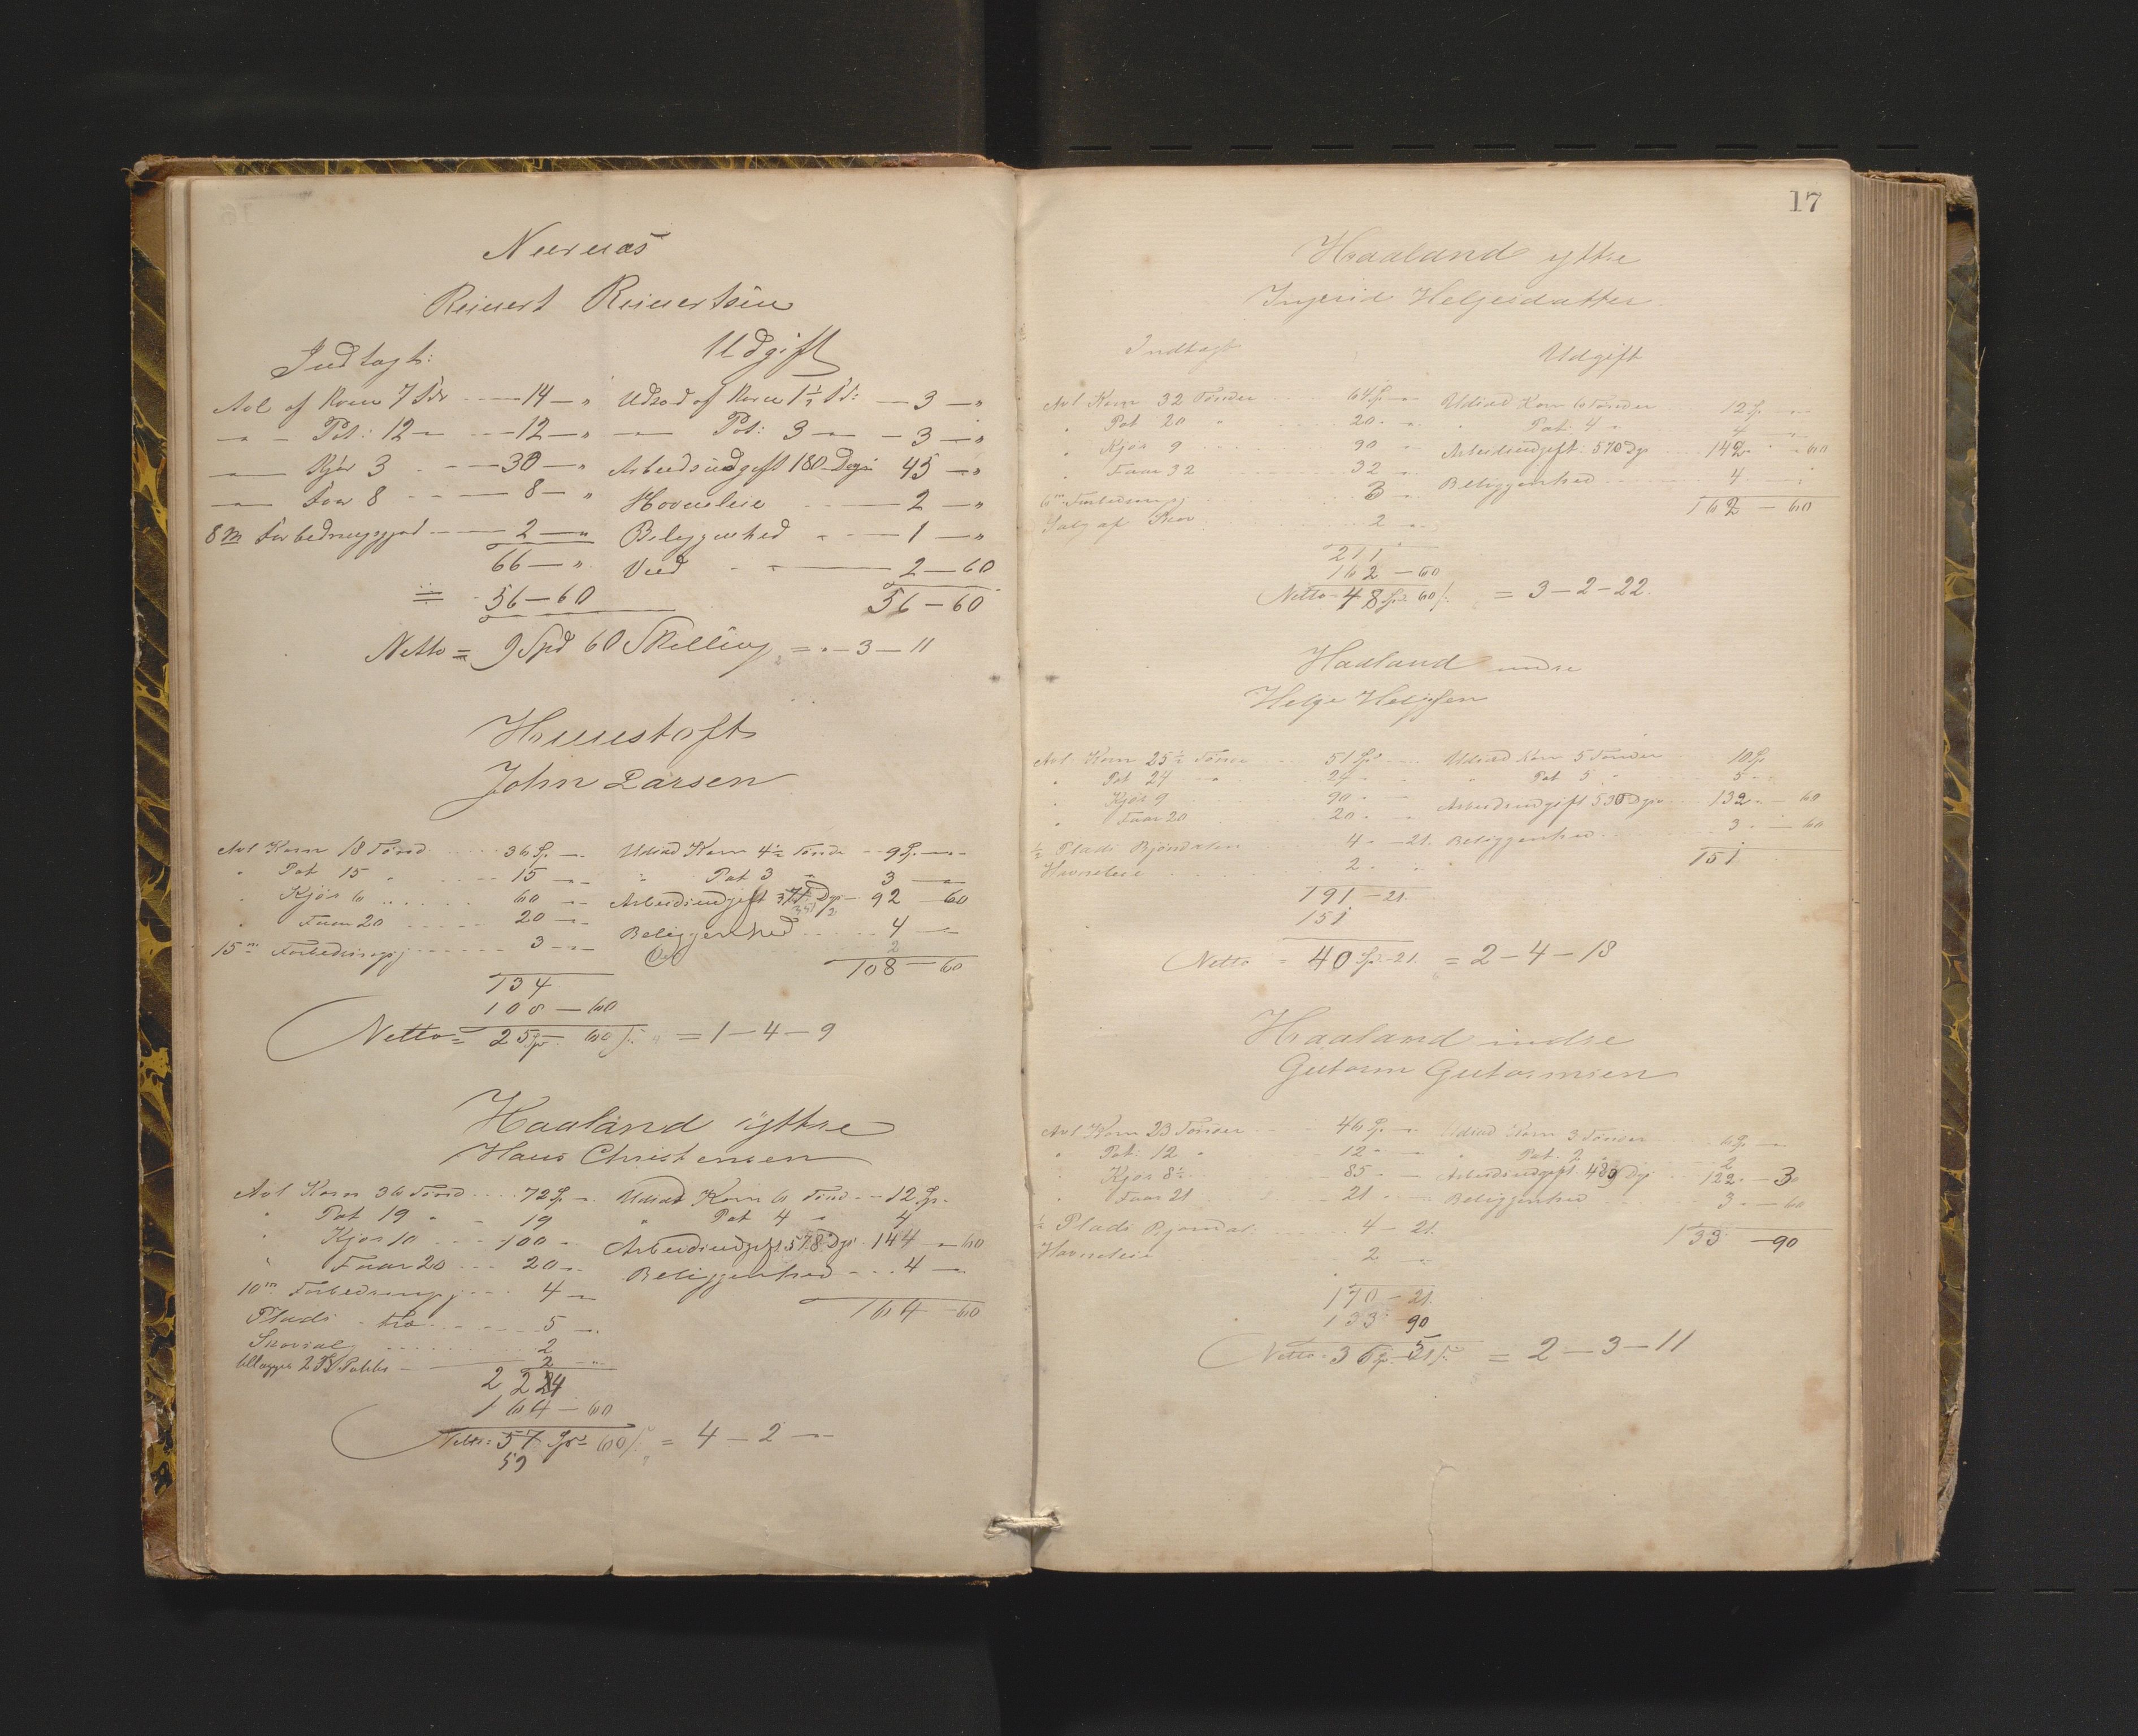 Nærnæs
Reinert Reinertsen
Indtægt: Udgift
Avl af Korn 7 Tdr 14 — " Udsæd af Korn 1½ Td: 3 — "
— " — Pot: 12 — " 12 — " — " — Pot: 3 — " — 3 — "
— " — Kjør 3 30 — " Arbeidsudgift 180 Dage 45 — "
— " — Faar 8 8 — " Havneleie 2 — "
8 m Forbedringsjord 2 — " Beliggenhed 1 — "
66 — " Ved 2 — 60
÷ 56 — 60 56 — 60
Netto = 9 Spd 60 Skilling = " — 3 — 11
Hunstoft
John Larsen
Avl Korn 18 Tønd 36 Sp. — " Udsæd Korn 4½ Tønde 9 Sp. — "
" Pot 15 " 15 — " " Pot 3 " 3 — "
" Kjør 6 60 — " Arbeidsudgift 371 Dge 92 — 60
" Faar 20 20 — " Beliggenhed 4 — "
15 m Forbedringsj 3 — " 2
134 108 — 60
108 — 60
Netto = 25 Sp. 60 s. = 1 — 4 — 9
Haaland yttre
Hans Christensen
Avl Korn 36 Tønd 72 Sp. — " Udsæd Korn 6 Tønd 12 Sp.
" Pot 19 " 19 " Pot 4 " 4
" Kjør 10 100 " Arbeidsudgift 578 Dge 144 — 60
" Faar 20 20 — " Beliggenhed 4 — "
10 m Forbedringsj 4 — " 164 — 60
Plads 5 — "
2
2 — "
224
164 — 60
Netto: 57 Sp. 60 s. = 4 — 2 — "
59
17
Haaland yttre
Ingerid Helgesdatter
Indtægt Udgift
Avl Korn 32 Tønder 64 Sp. — " Udsæd Korn 6 Tønder 12 Sp. — "
" Pot 20 " 20 " " Pot 4 " 4 — "
" Kjør 9 90 " Arbeidsudgift 570 Dge 142 — 60
" Faar 32 32 — " Beliggenhed 4 — "
6 m Forbedringsj 3 — " 162 — 60
Salg af 2 — "
211
162 — 60
Netto 48 Sp. 60 s. = 3 — 2 — 22.
Haaland indre
Helge Helgesen
Avl Korn 25½ Tønder 51 Sp. Udsæd Korn 5 Tønder 10 Sp
" Pot 24 — " 24 " Pot 5 " 5 — "
" Kjør 9 90 " — Arbeidsudgift 530 Dge 132 " — 60
" Faar 20 20 " — Beliggenhed 3 " — 60
½ Plads Bjøndalen 4 " — 21. 151
Havneleie 2
191 — 21.
151
Netto = 40 Sp. 21. = 2 — 4 — 18
Haaland indre
Gutorm Gutormsen
Avl Korn 23 Tønder 46 Sp. — " Udsæd Korn 3 Tønder 6 Sp. — "
" Pot: 12 " 12 " — " Pot: 2 " 2
" Kjør 8½ 85 " — Arbeidsudgift 489 Dge 122 " — 30
" Faar 21 21 " — " Beliggenhed 3 " — 60
½ Plads Bjøndal. 4 — 21. 133 — 90
Havneleie 2 — "
170 — 21.
133 90
Netto 36 Sp. 51 s. = 2 — 3 — 11